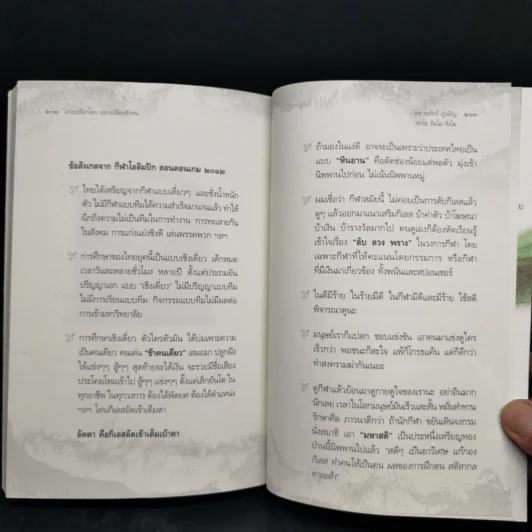 ๒๐๒ แกะเปลือกโลก นอกเปลือกสังคม
ข้อสังเกตจาก กีฬาโอลิมปิก ลอนดอนเกม ๒๐๑๒
ไทยได้เหรียญจากกีฬาแบบเดี่ยวๆ และชั่งน้ำหนัก
ตัว ไม่มีกีฬาแบบทีมได้ความสำเร็จมานานแล้ว ทำให้
นึกถึงความไม่เป็นทีมในการทำงาน การทะเลาะกัน
ในสังคม การแก่งแย่งชิงดี เล่นพรรคพวก ฯลฯ
การศึกษาของไทยยุคนี้เป็นแบบเชิงเดี่ยว เด็กหมด
เวลาวันละหลายชั่วโมง หลายปี ตั้งแต่ประถมยัน
ปริญญาเอก แบบ "เชิงเดี่ยว" ไม่มีปริญญาแบบทีม
ไม่มีการเรียนแบบทีม กิจกรรมแบบทีมไม่มีผลต่อ
การเข้ามหาวิทยาลัย
การศึกษาเชิงเดี่ยว ตัวใครตัวมัน ได้บ่มเพาะความ
เป็นคนเดียว คนเด่น "ข้าคนเดียว" เสมอมา ปลูกฝัง
ให้แข่งๆๆ สู้ๆๆ สุดท้ายจะได้เงิน จะรวยมีชื่อเสียง
ประโคมโหมเข้าไป สู้ๆๆ แข่งๆๆ ตั้งแต่เล็กยันโต ใน
ทุกอาชีพ ในทุกวงการ ต้องได้พัดยศ ต้องได้ตำแหน่ง
ฯลฯ โดนกิเลสอัดเข้าเต็มตา
อัตตา คือกิเลสอัดเข้าเต็มเบ้าตา
๒๐๓
ถ้ามองในแง่ดี อาจจะเป็นเพราะว่าประเทศไทยเป็น
แบบ "หินยาน" คือตัดช่องน้อยแต่พอตัว มุ่งเข้า
นิพพานไปก่อน ไม่เน้นนิพพานหมู่
ผมเชื่อว่า กีฬาสมัยนี้ ไม่ค่อยเป็นการดับกิเลสแล้ว
ดูๆ แล้วออกมาแนวเสริมกิเลส บ้าค่าตัว บ้าโฆษณา
บ้าเงิน บ้ารางวัลมากไป คนดูเองก็ต้องหัดเรียนรู้
เข้าใจเรื่อง "ลับ ลวง พราง" ในวงการกีฬา โดย
เฉพาะกีฬาที่ให้คะแนนโดยกรรมการ หรือกีฬา
ที่มีเงินมาเกี่ยวข้อง ทั้งพนันและสปอนเซอร์
ในดีมีร้าย ในร้ายมีดี ในกีฬามีดีและมีร้าย ใช้สติ
พิจารณาดูนะ
มนุษย์เราก็แปลก ชอบแข่งขัน เอาคนมาแข่งดูใคร
เร็วกว่า พอชนะก็สะใจ แพ้ก็โกรธแค้น แต่ก็ดีกว่า
ทำสงครามฆ่ากันเนอะ
ดูกีฬาแล้วย้อนมาดูกายดูใจของเรานะ อย่าอินมาก
นักเลย เวลาในโลกมนุษย์มันเร็วและสั้น หมั่นทำทาน
รักษาศีล ภาวนาดีกว่า ถ้านักกีฬา ขยันเดินจงกรม
นั่งสมาธิ เอา "มหาสติ" เป็นประหนึ่งเหรียญทอง
ป่านนี้นิพพานไปแล้ว "สติๆ เป็นยาวิเศษ แก้กอง
กิเลส ทำคนให้เป็นคน ผลของการฝึกตน